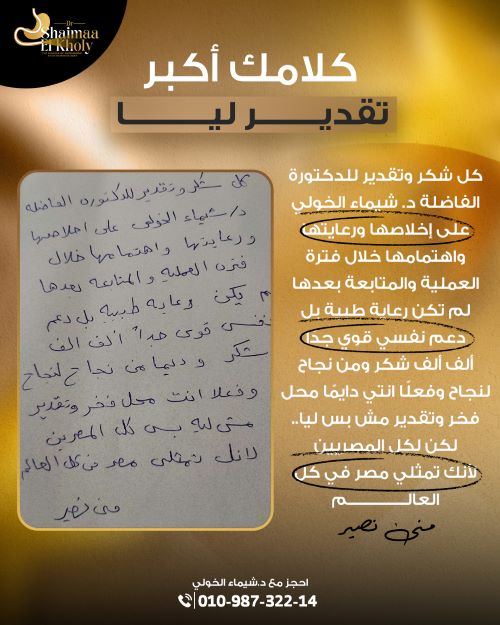 Dr
Shaimaa
El Kholy
كلامك أكبر
تقديـــر ليـــا
كل شكر وتقدير للدكتورة الفاضله
د/ شيماء الخولى على اخلاصها
ورعايتها واهتمامها خلال
فترة العمليه والمتابعه بعدها
لم يكن رعايه طبيه بل دعم
نفسى قوى جداً الف الف
شكر ودايما من نجاح لنجاح
وفعلا انت محل فخر وتقدير
مش ليه بس كل المصريين
لانك تمثلى مصر فى كل العالم
منى نصير
كل شكر وتقدير للدكتورة
الفاضلة د. شيماء الخولي
على إخلاصها ورعايتها
واهتمامها خلال فترة
العملية والمتابعة بعدها
لم تكن رعاية طبية بل
دعم نفسي قوي جدا
ألف ألف شكر ومن نجاح
لنجاح وفعلًا انتي دايمًا محل
فخر وتقدير مش بس ليا..
لكن لكل المصريين
لأنك تمثلي مصر في كل
العالـــــم
منى نصير
احجز مع د.شيماء الخولي
010-987-322-14